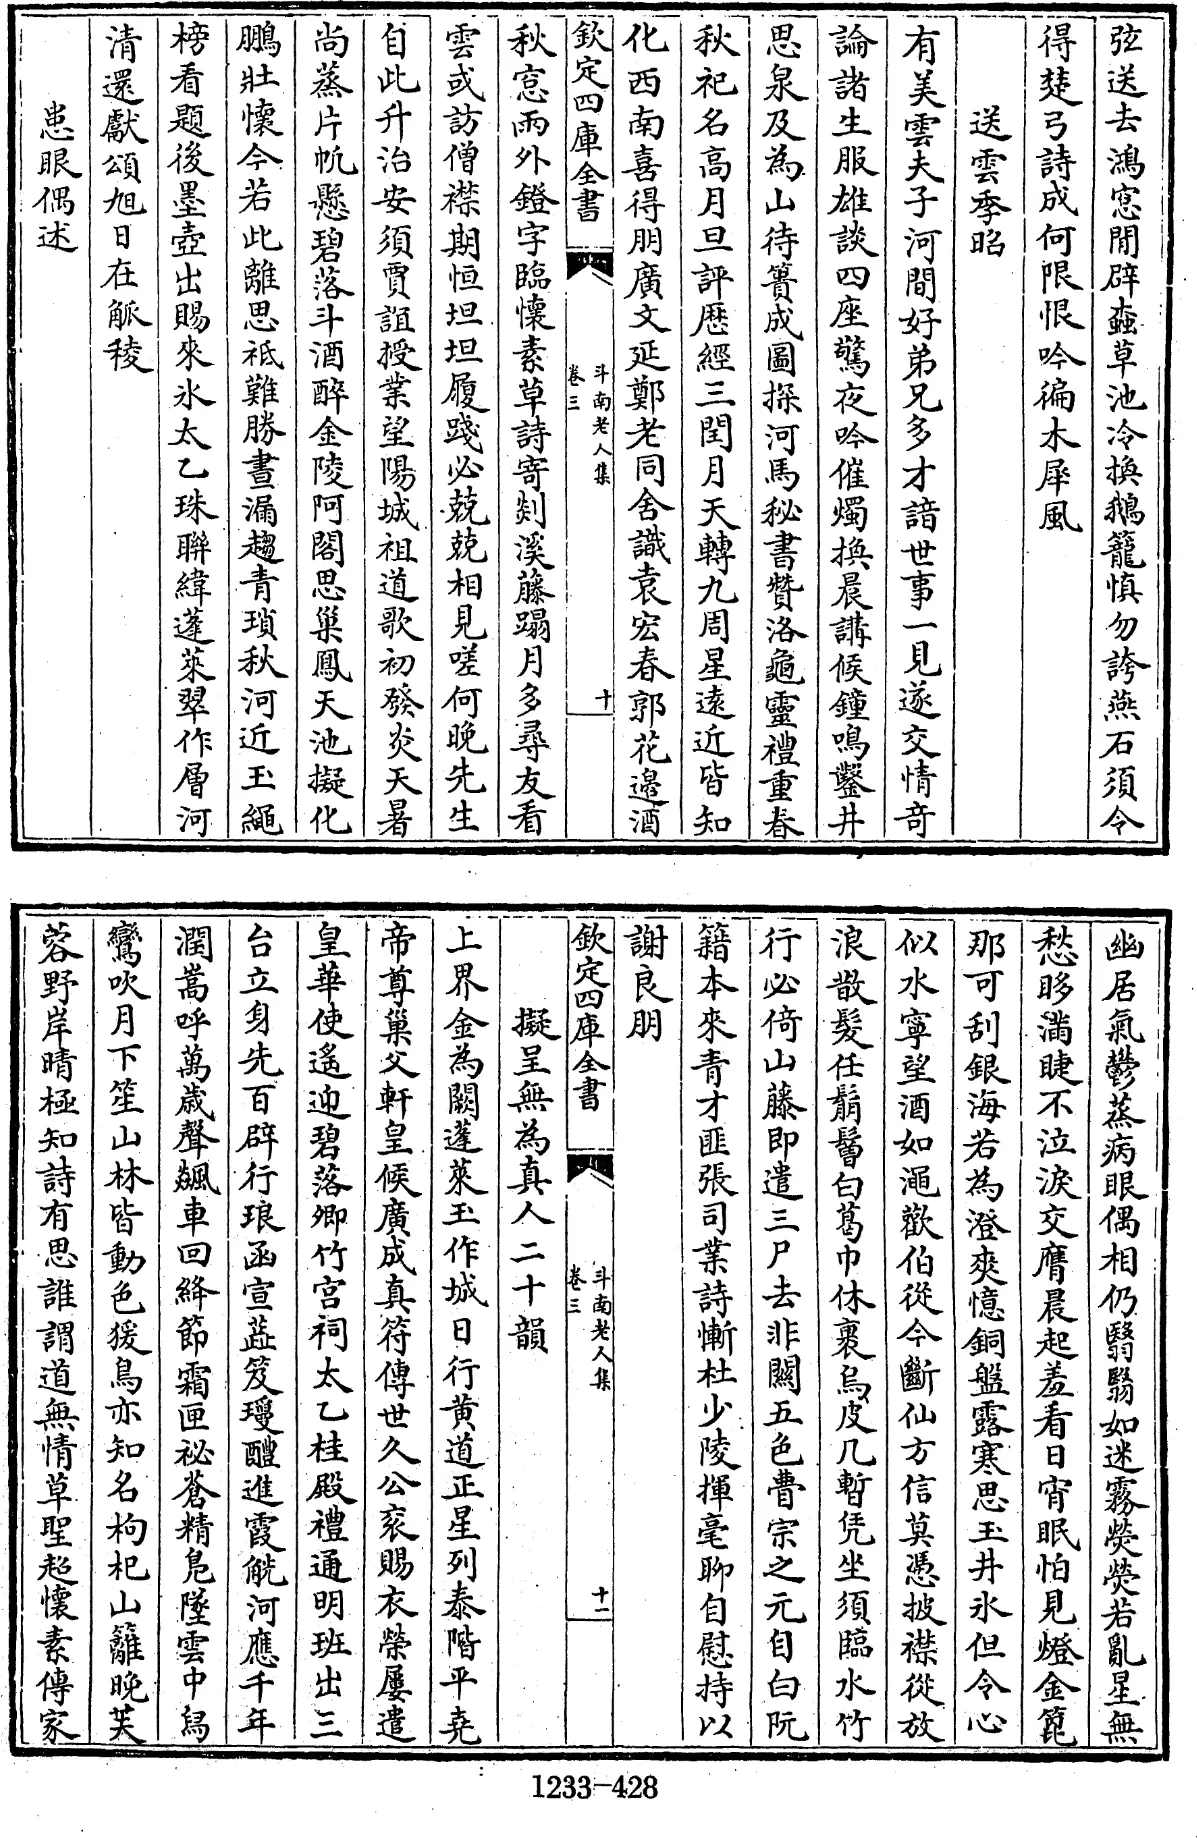 弦送去鴻窓閒辟蟲草池冷換鵝籠慎勿誇燕石須令
得楚弓詩成何限恨吟徧木犀風
送雲季昭
有美雲夫子河間好弟兄多才諳世事一見遂交情奇
論諸生服雄談四座驚夜吟催燭換晨講候鐘鳴鑿井
思泉及為山待簣成圖探河馬秘書贊洛龜靈禮重春
秋祀名高月旦評歷經三閏月天轉九周星遠近皆知
化西南喜得朋廣文延鄭老同舍識袁宏春郭花邊酒
欽定四庫全書
斗南老人集
卷三
十
秋窓雨外鐙字臨懷素草詩寄剡溪藤蹋月多尋友看
雲或訪僧襟期恒坦坦履踐必兢兢相見嗟何晚先生
自此升治安須賈誼授業望陽城祖道歌初發炎天暑
尚蒸片帆懸碧落斗酒醉金陵阿閣思巢鳳天池擬化
鵬壯懷今若此離思祗難勝晝漏趨青瑣秋河近玉繩
榜看題後墨壺出賜來氷太乙珠聯緯蓬萊翠作層河
清還獻頌旭日在觚稜
患眼偶述
幽居氣鬱蒸病眼偶相仍翳翳如迷霧熒熒若亂星無
愁眵滿睫不泣淚交膺晨起羞看日宵眠怕見燈金篦
那可刮銀海若為澄爽憶銅盤露寒思玉井氷但令心
似水寧望酒如澠歡伯從今斷仙方信莫憑披襟從放
浪散髮任鬅鬠白葛巾休裹烏皮几暫凭坐須臨水竹
行必倚山藤即遣三尸去非關五色瞢宗之元自白阮
籍本來青才匪張司業詩慚杜少陵揮毫聊自慰持以
謝良朋
欽定四庫全書
斗南老人集
卷三
十一
擬呈無為真人二十韻
上界金為闕蓬萊玉作城日行黄道正星列泰階平堯
帝尊巢父軒皇候廣成真符傳世久公衮賜衣榮屢遣
皇華使遙迎碧落卿竹宫祠太乙桂殿禮通明班出三
台立身先百辟行琅函宣蕋笈璦醴進霞觥河應千年
潤嵩呼萬歲聲飈車回絳節霜匣祕蒼精鳬墜雲中舄
鸞吹月下笙山林皆動色猨鳥亦知名枸杞山籬晚芙
蓉野岸晴極知詩有思誰謂道無情草聖起懷素傳家
1233-428